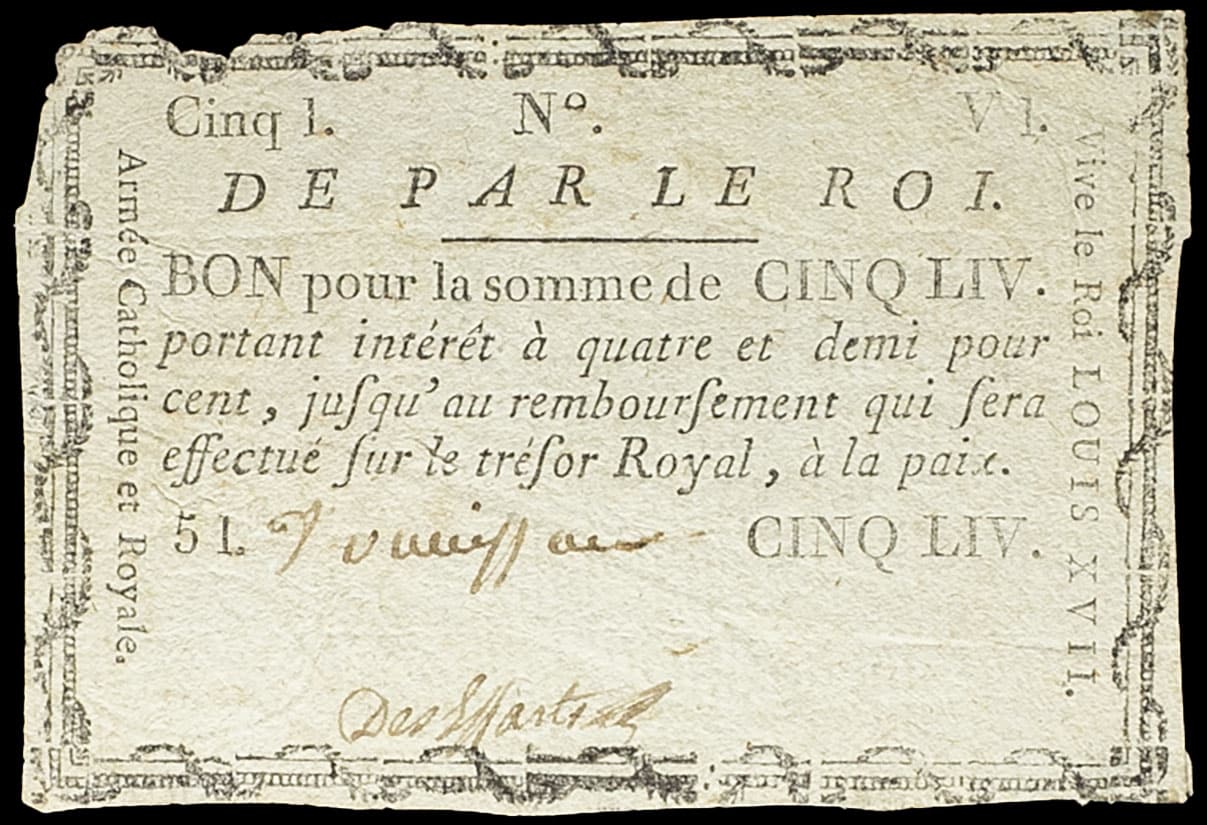 Cinq l. Nº. V l.
DE PAR LE ROI.
BON pour la somme de CINQ LIV.
portant intérêt à quatre et demi pour
cent, juſqu'au rembourſement qui ſera
effectué ſur le tréſor Royal, à la paix.
5 l. CINQ LIV.
DesEssarts
Armée Catholique et Royale.
Vive le Roi LOUIS XVII.